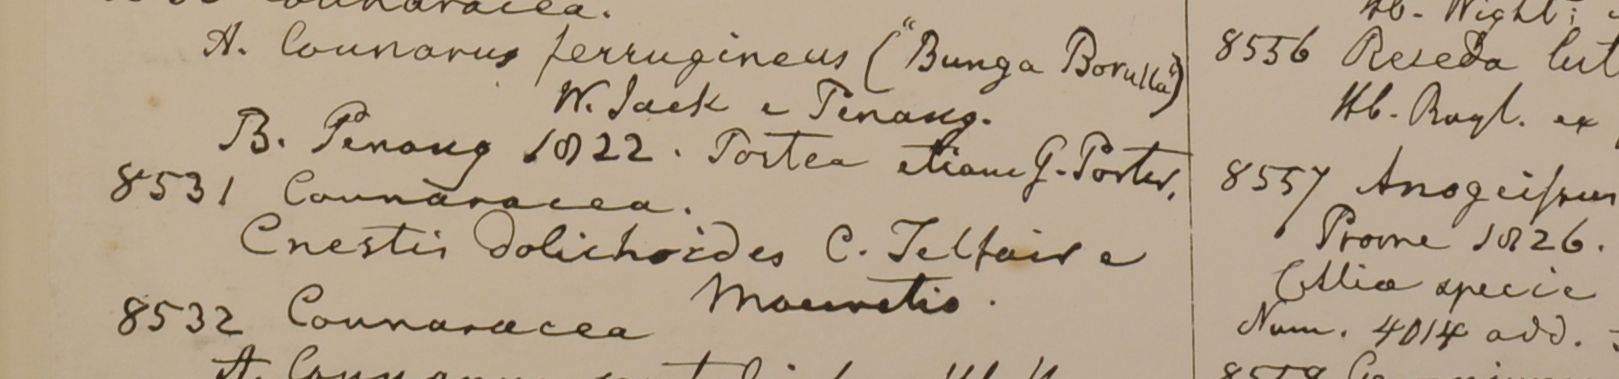 Connaracea.
A. Connarus ferrugineus ("Bunga Borulla")
W. Jack e Penang.
B. Penang 1822. Postea etiam G. Porter.
8531 Connaracea.
Cnestis dolichoides C. Telfair e
Mauritio.
8532 Connaracea
A.
Hb. Wight;
8556 Reseda lut
Hb. Royl. ex
8557 Anogeissus
Prome 1826.
specie
Num. 4014 add.